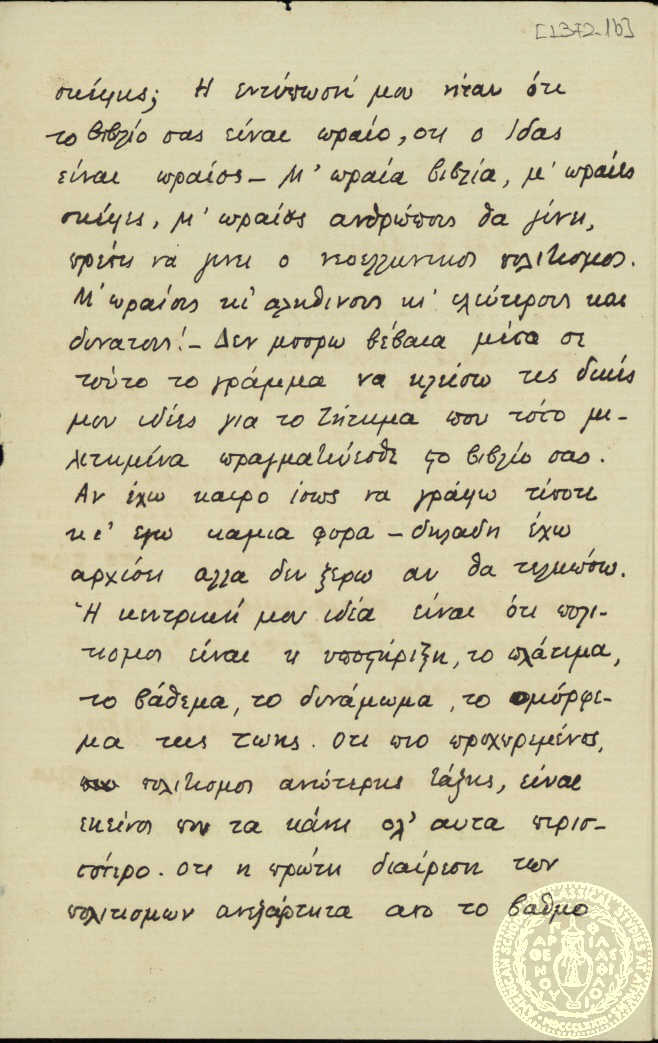 [1372.1b]
σκέψεις; Η εντύπωσή μου ήταν ότι
το βιβλίο σας είναι ωραίο, οτι ο Ίδας
είναι ωραίος – Μ' ωραία βιβλία, μ' ωραίες
σκέψεις, μ' ωραίους ανθρώπους θα γίνη,
πρέπει να γινει ο νεοελληνικος πολιτισμος.
Μ' ωραίους κι' αληθινους κι' ελεύτερους και
δυνατους! – Δεν μπορω βέβαια μέσα σε
τούτο το γράμμα να κλείσω τες δικές
μου ιδέες για το ζήτημα που τόσο με-
λετημένα πραγματεύεσθε στο βιβλίο σας.
Αν έχω καιρο ίσως να γράψω τίποτε
κι' εγω καμια φορα – δηλαδη έχω
αρχίσει αλλα δεν ξερω αν θα τελειώσω.
Ἡ κεντρική μου ιδέα είναι ότι πολι-
τισμος είναι η υποστήριξη, το πλάτεμα,
το βάθεμα, το δυνάμωμα, το ομόρφε-
μα της ζωης. Οτι πιο προχωρημένος,
πολιτισμος ανώτερης τάξης, είναι
εκείνος που τα κάνει ολ' αυτα περισ-
σότερο. Οτι η πρώτη διαίρεση των
πολιτισμων ανεξάρτητα απο το βαθμο
AMERICAN SCHOOL OF CLASSICAL STUDIES AT ATHENS
MDCCCLXXXI